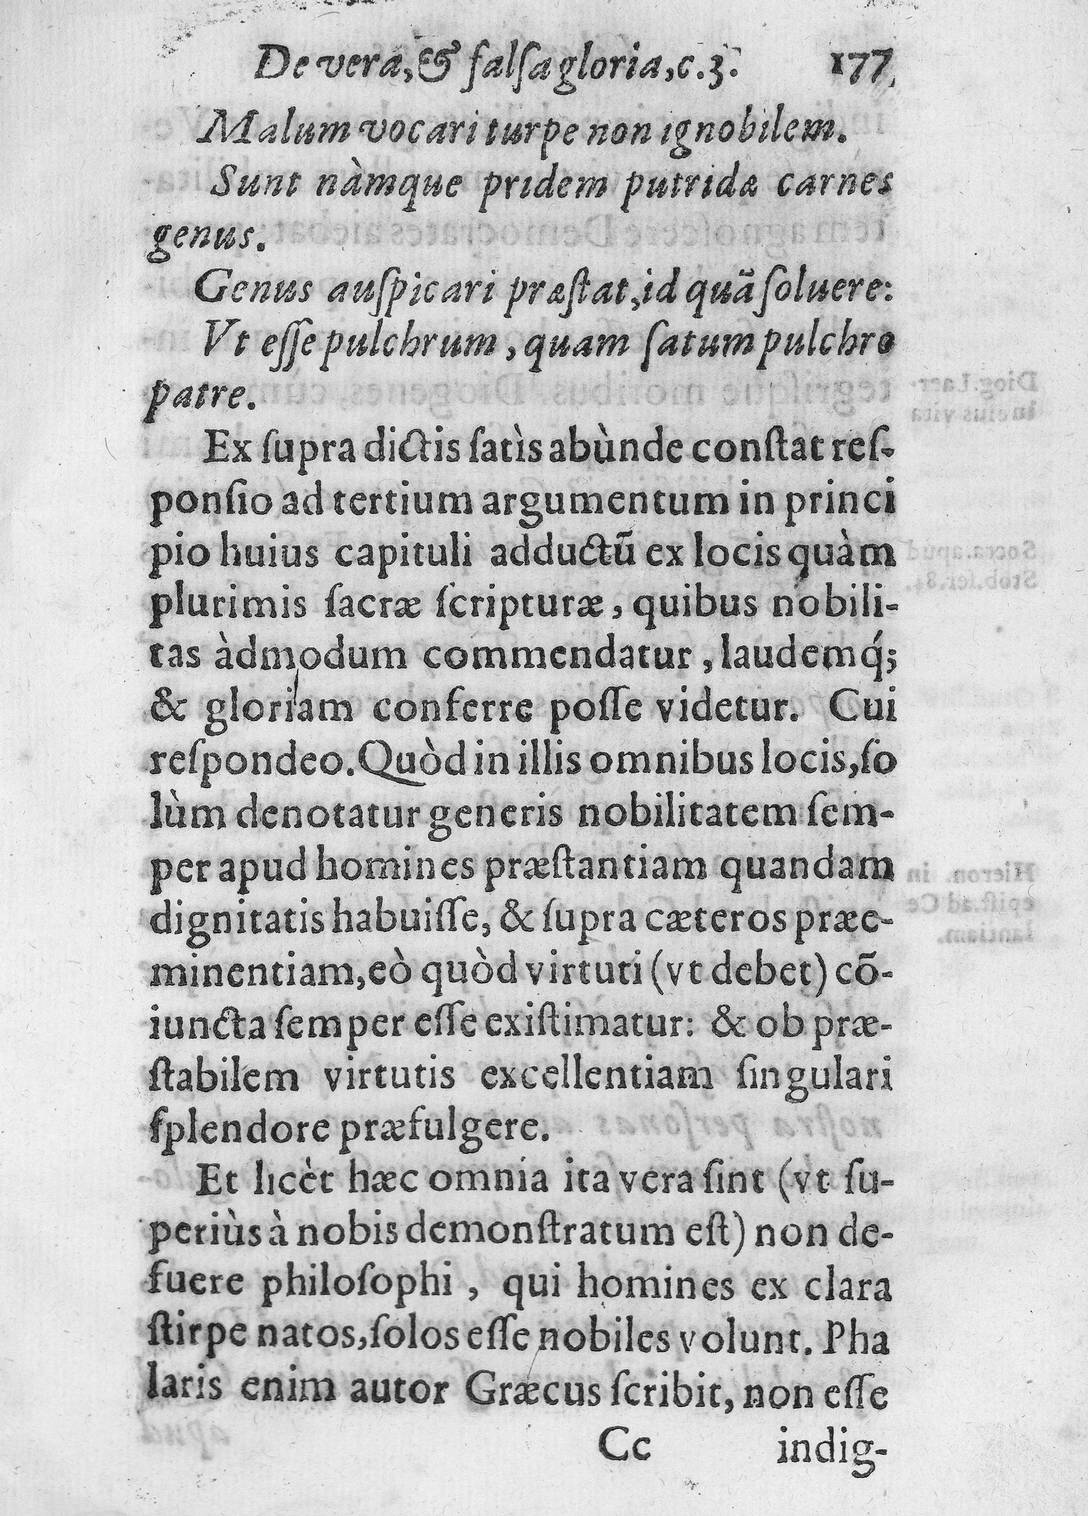 De vera, & falſa gloria, c. 3. 177
Malum vocari turpe non ignobilem.
Sunt nàmque pridem putridæ carnes
genus.
Genus auſpicari præſtat, id quã ſoluere:
Vt eſſe pulchrum, quam ſatum pulchro
patre.
Ex ſupra dictis ſatìs abùnde conſtat reſ-
ponſio ad tertium argumentum in princi
pio huius capituli adductũ ex locis quàm
plurimis ſacræ ſcripturæ, quibus nobili-
tas àdmodum commendatur, laudemq́;
& gloriam conferre poſſe videtur. Cui
reſpondeo. Quòd in illis omnibus locis, ſo
lùm denotatur generis nobilitatem ſem-
per apud homines præſtantiam quandam
dignitatis habuiſſe, & ſupra cæteros præe-
minentiam, eò quòd virtuti (vt debet) cõ-
iuncta ſemper eſſe exiſtimatur: & ob præ-
ſtabilem virtutis excellentiam ſingulari
ſplendore præfulgere.
Et licèt hæc omnia ita vera ſint (vt ſu-
periùs à nobis demonſtratum eſt) non de-
fuere philoſophi, qui homines ex clara
ſtirpe natos, ſolos eſſe nobiles volunt. Pha
laris enim autor Græcus ſcribit, non eſſe
Cc indig-